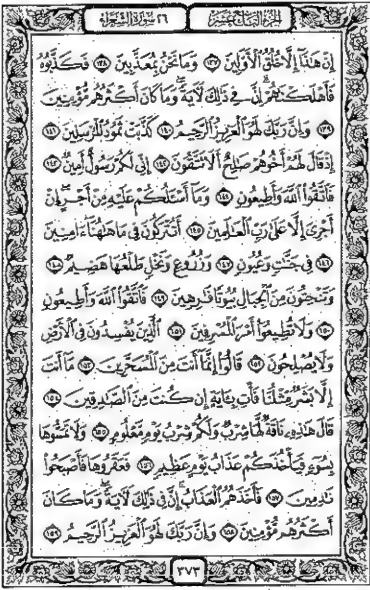 الجزء التاسع عشر ٢٦ سورة الشعراء
إِنْ هَٰذَآ إِلَّا خُلُقُ ٱلْأَوَّلِينَ ١٣٧ وَمَا نَحْنُ بِمُعَذَّبِينَ ١٣٨ فَكَذَّبُوهُ
فَأَهْلَكْنَٰهُمْ إِنَّ فِى ذَٰلِكَ لَـَٔايَةً وَمَا كَانَ أَكْثَرُهُم مُّؤْمِنِينَ
١٣٩ وَإِنَّ رَبَّكَ لَهُوَ ٱلْعَزِيزُ ٱلرَّحِيمُ ١٤٠ كَذَّبَتْ ثَمُودُ ٱلْمُرْسَلِينَ ١٤١
إِذْ قَالَ لَهُمْ أَخُوهُمْ صَٰلِحٌ أَلَا تَتَّقُونَ ١٤٢ إِنِّى لَكُمْ رَسُولٌ أَمِينٌ ١٤٣
فَٱتَّقُوا۟ ٱللَّهَ وَأَطِيعُونِ ١٤٤ وَمَآ أَسْـَٔلُكُمْ عَلَيْهِ مِنْ أَجْرٍ إِنْ
أَجْرِىَ إِلَّا عَلَىٰ رَبِّ ٱلْعَٰلَمِينَ ١٤٥ أَتُتْرَكُونَ فِى مَا هَٰهُنَآ ءَامِنِينَ
١٤٦ فِى جَنَّٰتٍ وَعُيُونٍ ١٤٧ وَزُرُوعٍ وَنَخْلٍ طَلْعُهَا هَضِيمٌ ١٤٨
وَتَنْحِتُونَ مِنَ ٱلْجِبَالِ بُيُوتًا فَٰرِهِينَ ١٤٩ فَٱتَّقُوا۟ ٱللَّهَ وَأَطِيعُونِ
١٥٠ وَلَا تُطِيعُوٓا۟ أَمْرَ ٱلْمُسْرِفِينَ ١٥١ ٱلَّذِينَ يُفْسِدُونَ فِى ٱلْأَرْضِ
وَلَا يُصْلِحُونَ ١٥٢ قَالُوٓا۟ إِنَّمَآ أَنتَ مِنَ ٱلْمُسَحَّرِينَ ١٥٣ مَآ أَنتَ
إِلَّا بَشَرٌ مِّثْلُنَا فَأْتِ بِـَٔايَةٍ إِن كُنتَ مِنَ ٱلصَّٰدِقِينَ ١٥٤
قَالَ هَٰذِهِۦ نَاقَةٌ لَّهَا شِرْبٌ وَلَكُمْ شِرْبُ يَوْمٍ مَّعْلُومٍ ١٥٥ وَلَا تَمَسُّوهَا
بِسُوٓءٍ فَيَأْخُذَكُمْ عَذَابُ يَوْمٍ عَظِيمٍ ١٥٦ فَعَقَرُوهَا فَأَصْبَحُوا۟
نَٰدِمِينَ ١٥٧ فَأَخَذَهُمُ ٱلْعَذَابُ إِنَّ فِى ذَٰلِكَ لَـَٔايَةً وَمَا كَانَ
أَكْثَرُهُم مُّؤْمِنِينَ ١٥٨ وَإِنَّ رَبَّكَ لَهُوَ ٱلْعَزِيزُ ٱلرَّحِيمُ ١٥٩
٣٧٣